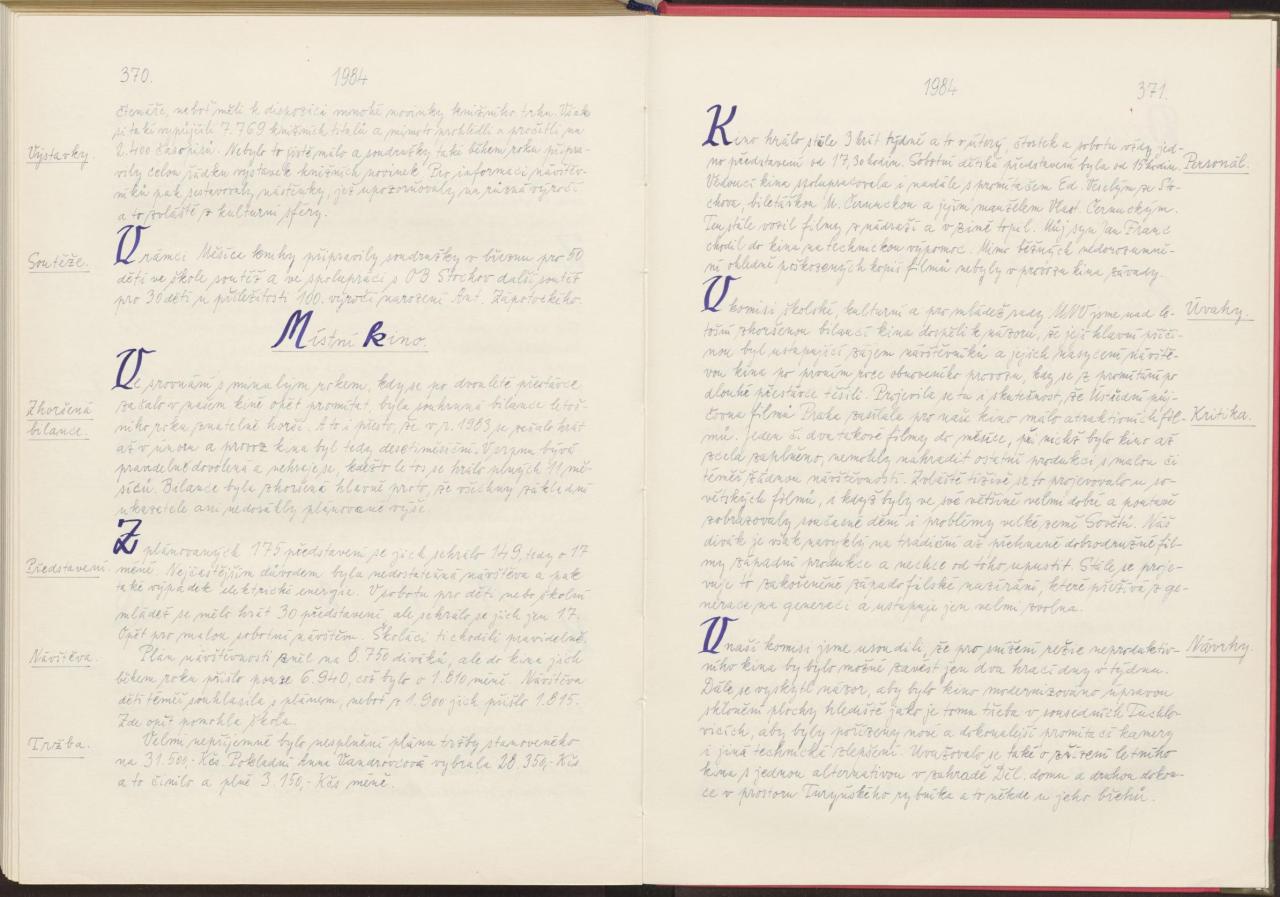 370.
1984
čtenáře, neboť měli k disposici mnohé novinky knižního trhu. Však
si také vypůjčili 7.769 knižních titulů a mimoto prohlédli a pročetli na
Výstavky.
2.400 časopisů. Nebylo to jistě málo a soudružky také během roku připra-
vily celou řádku výstavek knižních novinek. Pro informaci návštěv-
níků pak sestavovaly nástěnky, jež upozorňovaly na různá výročí
a to zvláště z kulturní sféry.
Soutěže.
V rámci Měsíce knihy připravily soudružky v březnu pro 50
dětí ve škole soutěž a ve spolupráci s OB Stochov další soutěž
pro 30 dětí u příležitosti 100. výročí narození Ant. Zápotockého.
Místní kino.
Ve srovnání s minulým rokem, kdy se po dvouleté přestávce
Zhoršená
bilance.
začalo v našem kině opět promítat, byla souhrnná bilance letoš-
ního roku znatelně horší. A to i přesto, že v r. 1983 se začalo hrát
až v únoru a provoz kina byl tedy desetiměsíční. V srpnu bývá
pravidelně dovolená a nehraje se, kdežto letos se hrálo plných 11 mě-
síců. Bilance byla zhoršená hlavně proto, že všechny základní
ukazatele ani nedosáhly plánované výše.
Představení.
Z plánovaných 175 představení se jich sehrálo 149, tedy o 17
méně. Nejčastějším důvodem byla nedostatečná návštěva a pak
také výpadek elektrické energie. V sobotu pro děti nebo školní
mládež se mělo hrát 30 představení, ale sehrálo se jich jen 17.
Opět pro malou sobotní návštěvu. Školáci ti chodili pravidelně.
Návštěva.
Plán návštěvnosti zněl na 8.750 diváků, ale do kina jich
během roku přišlo pouze 6.940, což bylo o 1.810 méně. Návštěva
dětí téměř souhlasila s plánem, neboť z 1.900 jich přišlo 1.815.
Zde opět pomohla škola.
Tržba.
Velmi nepříjemné bylo nesplnění plánu tržby stanoveného
na 31.500,- Kčs. Pokladní Anna Vandrovcová vybrala 28.350,- Kčs
a to činilo a plně 3.150,- Kčs méně.
1984
371.
Kino hrálo stále 3 krát týdně a to v úterý, čtvrtek a sobotu vždy jed-
Personál.
no představení od 17,30 hodin. Sobotní dětská představení byla od 15 hodin.
Vedoucí kina spolupracovala i nadále s promítačem Ed. Veselým ze Sto-
chova, biletářkou M. Černuckou a jejím manželem Vlast. Černuckým.
Ten stále vozil filmy z nádraží a v zimě topil. Můj syn Jan Franc
chodil do kina na technickou výpomoc. Mimo běžných nedorozumě-
ní ohledně poškozených kopií filmů nebyly v provozu kina závady.
Úvahy.
V komisi školské, kulturní a pro mládež rady MNV jsme nad le-
tošní zhoršenou bilancí kina dospěli k názoru, že její hlavní příči-
nou byl ustupující zájem návštěvníků a jejich nasycení návště-
vou kina po prvním roce obnoveného provozu, kdy se z promítání po
dlouhé přestávce těšili. Projevila se tu i skutečnost, že Ústřední půj-
Kritika.
čovna filmů Praha zasílala pro naše kino málo atraktivních fil-
mů. Jeden či dva takové filmy do měsíce, při nichž bylo kino až
zcela zaplněno, nemohly nahradit ostatní produkci s malou či
téměř žádnou návštěvností. Zvláště tíživě se to projevovalo u so-
větských filmů, i když byly ve své většině velmi dobré a poutavě
zobrazovaly současné dění i problémy velké země Sovětů. Náš
divák je však navyklý na tradiční až přehnaně dobrodružné fil-
my západní produkce a nechce od toho upustit. Stále se proje-
vuje to zakořeněné západofilské nazírání, které přežívá z ge-
nerace na generaci a ustupuje jen velmi zvolna.
Návrhy.
V naší komisi jsme usoudili, že pro snížení režie neproduktiv-
ního kina by bylo možné zavést jen dva hrací dny v týdnu.
Dále se vyskytl názor, aby bylo kino modernizováno úpravou
sklonění plochy hlediště jako je tomu třeba v sousedních Tuchlo-
vicích, aby byly pořízeny nové a dokonalejší promítací kamery
i jiná technická zlepšení. Uvažovalo se také o zřízení letního
kina s jednou alternativou v zahradě Děl. domu a druhou dokon-
ce v prostoru Turyňského rybníka a to někde u jeho břehů.